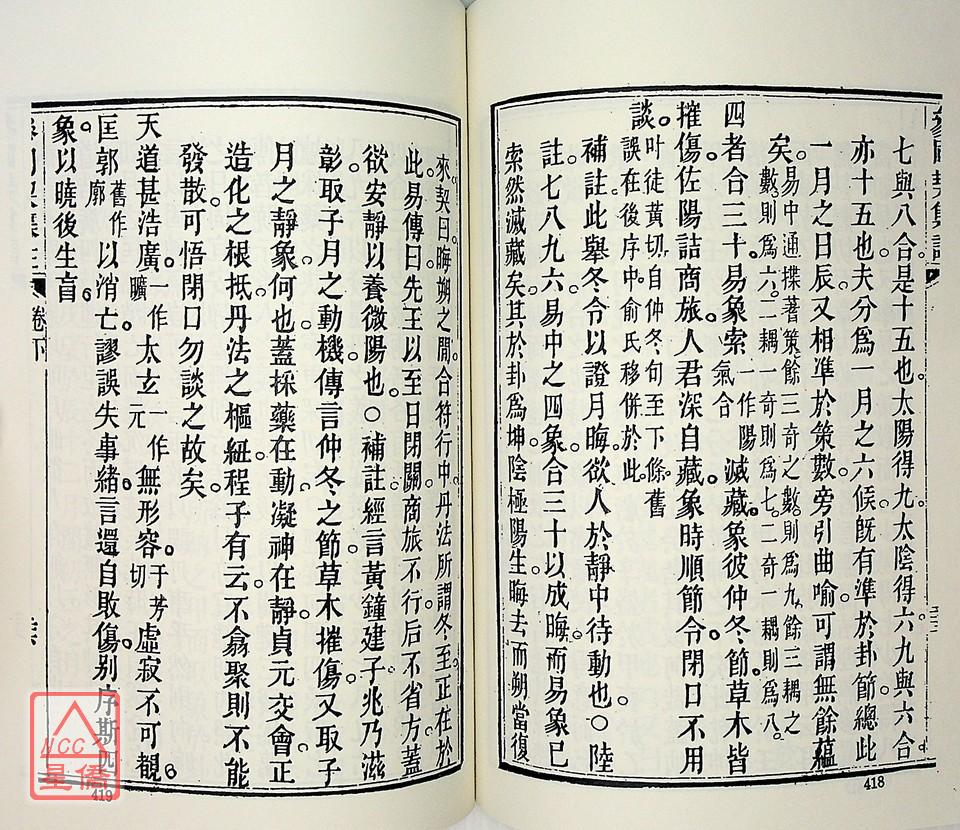 七與八合是十五也。太陽得九。太陰得六。九與六合
亦十五也。夫分爲一月之六候。旣有準於卦節。總此
一月之日辰。又相準於策數。旁引曲喻。可謂無餘蘊
矣。易中通揲蓍策。餘三奇之數。則爲九。餘三耦之
數。則爲六。二耦一奇則爲七。二奇一耦。則爲八。
四者合三十。易象索一作陽氣合滅藏。象彼仲冬節。草木皆
摧傷。佐陽詰商旅。人君深自藏。象時順節令。閉口不用
談。叶徒黃切。自仲冬句至下條。舊
誤在後序中。俞氏移併於此。
補註。此舉冬令以證月晦。欲人於靜中待動也。○陸
註。七八九六。易中之四象。合三十以成晦。而易象已
索然滅藏矣。其於卦爲坤。陰極陽生。晦去而朔當復
來。契曰。晦朔之閒。合符行中。丹法所謂冬至。正在於
此。易傳曰。先王以至日閉關。商旅不行。后不省方。蓋
欲安靜以養微陽也。○補註。經言黃鐘建子。兆乃滋
彰。取子月之動機。傳言仲冬之節。草木摧傷。又取子
月之靜象。何也。蓋採藥在動。凝神在靜。貞元交會。正
造化之根抵。丹法之樞紐。程子有云。不翕聚則不能
發散。可悟閉口勿談之故矣。
天道甚浩廣。一作曠太玄一作元無形容。于芳切虛寂不可覩。
匡郭舊作廓以消亡。謬誤失事緒。言還自敗傷。別序斯四
象。以曉後生盲。
卷下
418
419
NCC
星僑